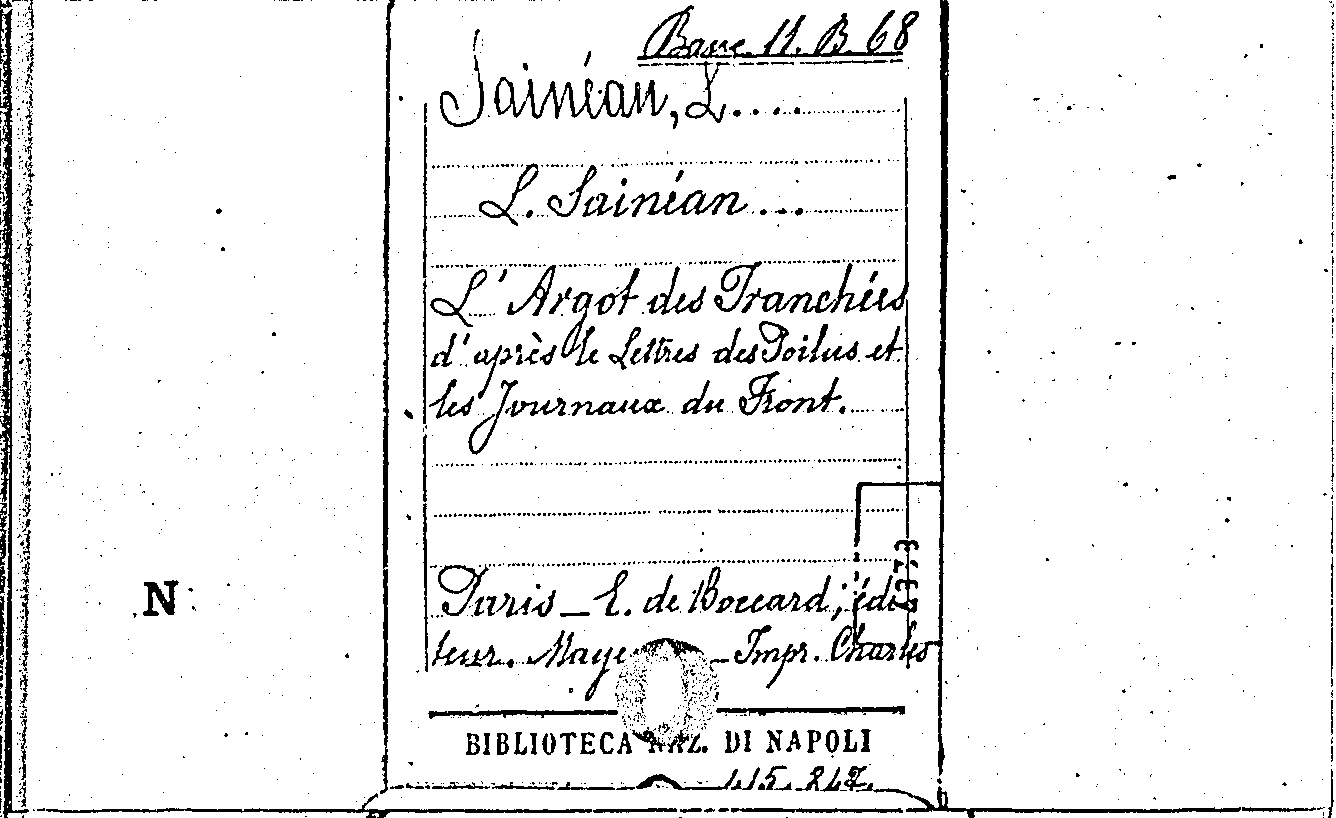 Banc. 11. B. 68
Sainéan, L....
L. Sainéan...
L'Argot des Tranchées
d'après le Lettres des Poilus et
les Journaux du Front.
4373
Paris _ E. de Boccard, édi
teur. Maye _ Impr. Charles
N
BIBLIOTECA NAZ. DI NAPOLI
415.247.